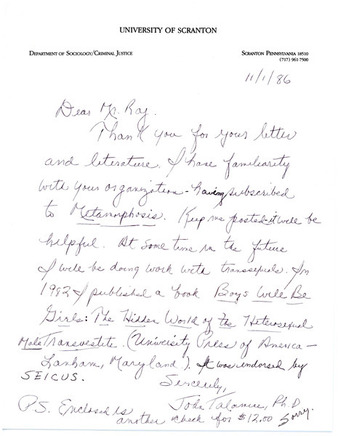 UNIVERSITY OF SCRANTON
DEPARTMENT OF SOCIOLOGY/CRIMINAL JUSTICE
SCRANTON PENNSYLVANIA 18510
(717) 961 7500
11/1/86
Dear Mr. Ray.
Thank you for your letter
and literature. I have familiarity
with your organization - having subscribed
to Metamorphosis. Keep me posted-it will be
helpful. At some time in the future
I will be doing work with transsexuals. In
1982 I published a book Boys Will Be
Girls: The Hidden World of the Heterosexual
Male Transvestite. (University Press of America -
Lanham, Maryland). It was endorsed by
SEICUS.
Sincerely,
John Talamini, Ph.D.
P.S. Enclosed is
another check for $12.00 Sorry.